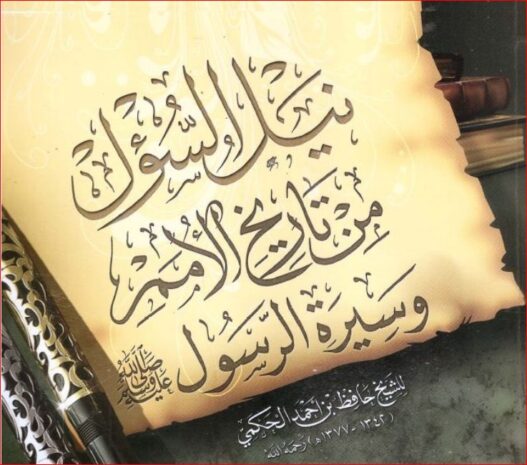 نَيْلُ السُّؤْلِ
مِنْ تَارِيخِ الأُمَمِ
وَسِيرَةِ الرَّسُولِ ﷺ
للشيخ حافظ بن أحمد الحكمي
(١٣٤٢ - ١٣٧٧هـ) رحمه الله